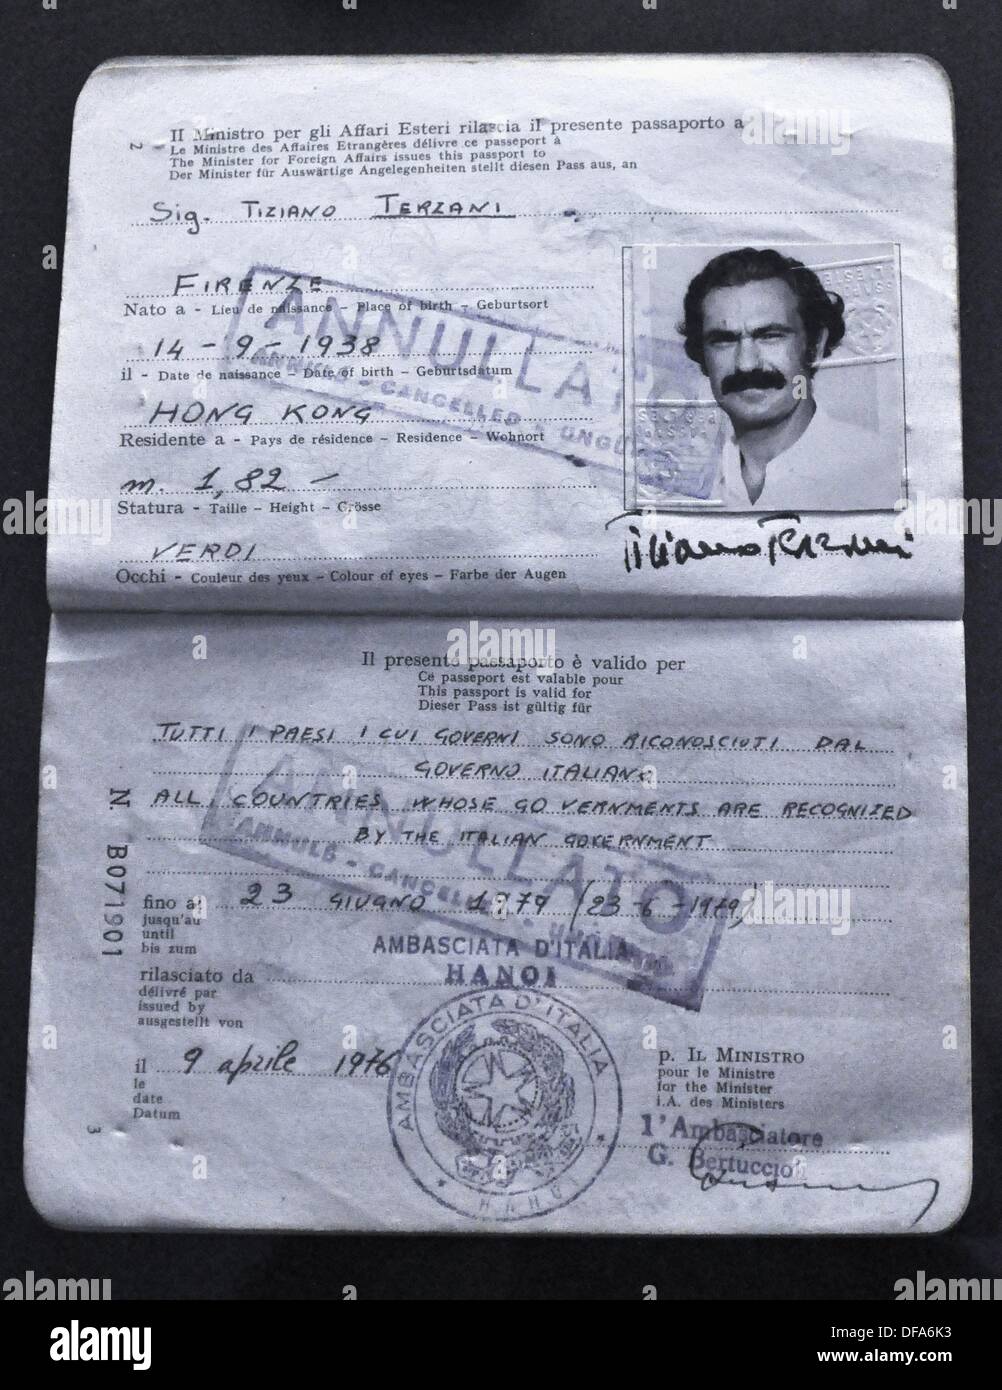 2
Il Ministro per gli Affari Esteri rilascia il presente passaporto a
Le Ministre des Affaires Etrangères délivre ce passeport à
The Minister for Foreign Affairs issues this passport to
Der Minister für Auswärtige Angelegenheiten stellt diesen Pass aus, an
Sig. TIZIANO TERZANI
FIRENZE
Nato a - Lieu de naissance - Place of birth - Geburtsort
14 - 9 - 1938
il - Date de naissance - Date of birth - Geburtsdatum
HONG KONG
Residente a - Pays de résidence - Residence - Wohnort
m. 1,82 -
Statura - Taille - Height - Grösse
VERDI
Occhi - Couleur des yeux - Colour of eyes - Farbe der Augen
ANNULLATO
ANNULÉ - CANCELLED -
Tiziano Terzani
Il presente passaporto è valido per
Ce passeport est valable pour
This passport is valid for
Dieser Pass ist gültig für
TUTTI I PAESI I CUI GOVERNI SONO RICONOSCIUTI DAL
GOVERNO ITALIANO
ALL COUNTRIES WHOSE GOVERNMENTS ARE RECOGNIZED
BY THE ITALIAN GOVERNMENT
ANNULLATO
ANNULÉ - CANCELLED -
N. B071901
fino a: 23 GIUGNO 1979 (23-6-1979)
jusqu'au
until
bis zum
AMBASCIATA D'ITALIA
HANOI
rilasciato da
délivré par
issued by
ausgestellt von
il 9 aprile 1976
le
date
Datum
AMBASCIATA D'ITALIA
* HANOI *
p. IL MINISTRO
pour le Ministre
for the Minister
i.A. des Ministers
l'Ambasciatore
G. Bertuccioli
3
alamy
a
alamy
Image ID: DFA6K3
www.alamy.com